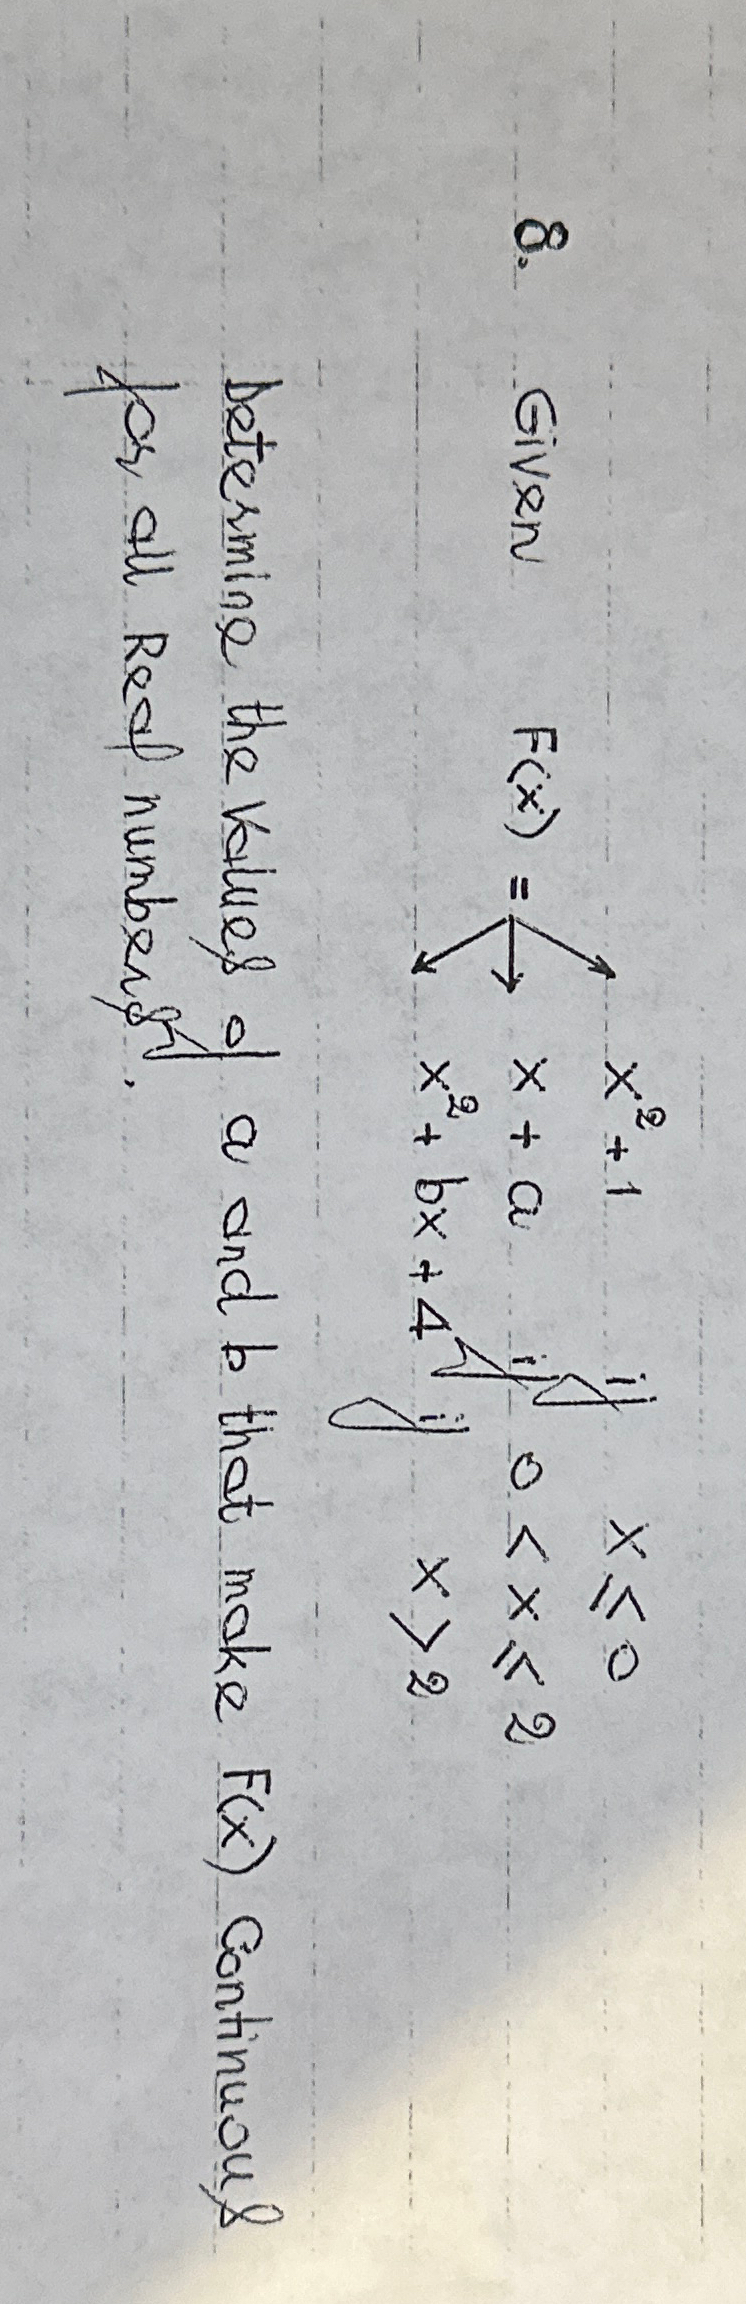 8. Given F(x) = x² + 1 if x ⩽ 0
x + a if 0 < x ⩽ 2
x² + bx + 4 if x > 2
Determine the values of a and b that make F(x) Continuous
for all Real numbers.